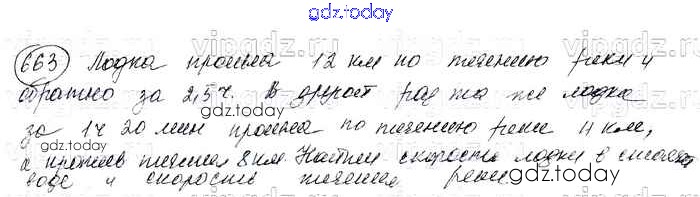 gdz.today
663 Лодка прошла 12 км по течению реки и
обратно за 2,5 ч. В другой раз та же лодка
за 1 ч 20 мин прошла по течению реки 4 км,
а против течения 8 км. Найти скорость лодки в стоячей
воде и скорость течения реки
gdz.today
gdz.today
gdz.today